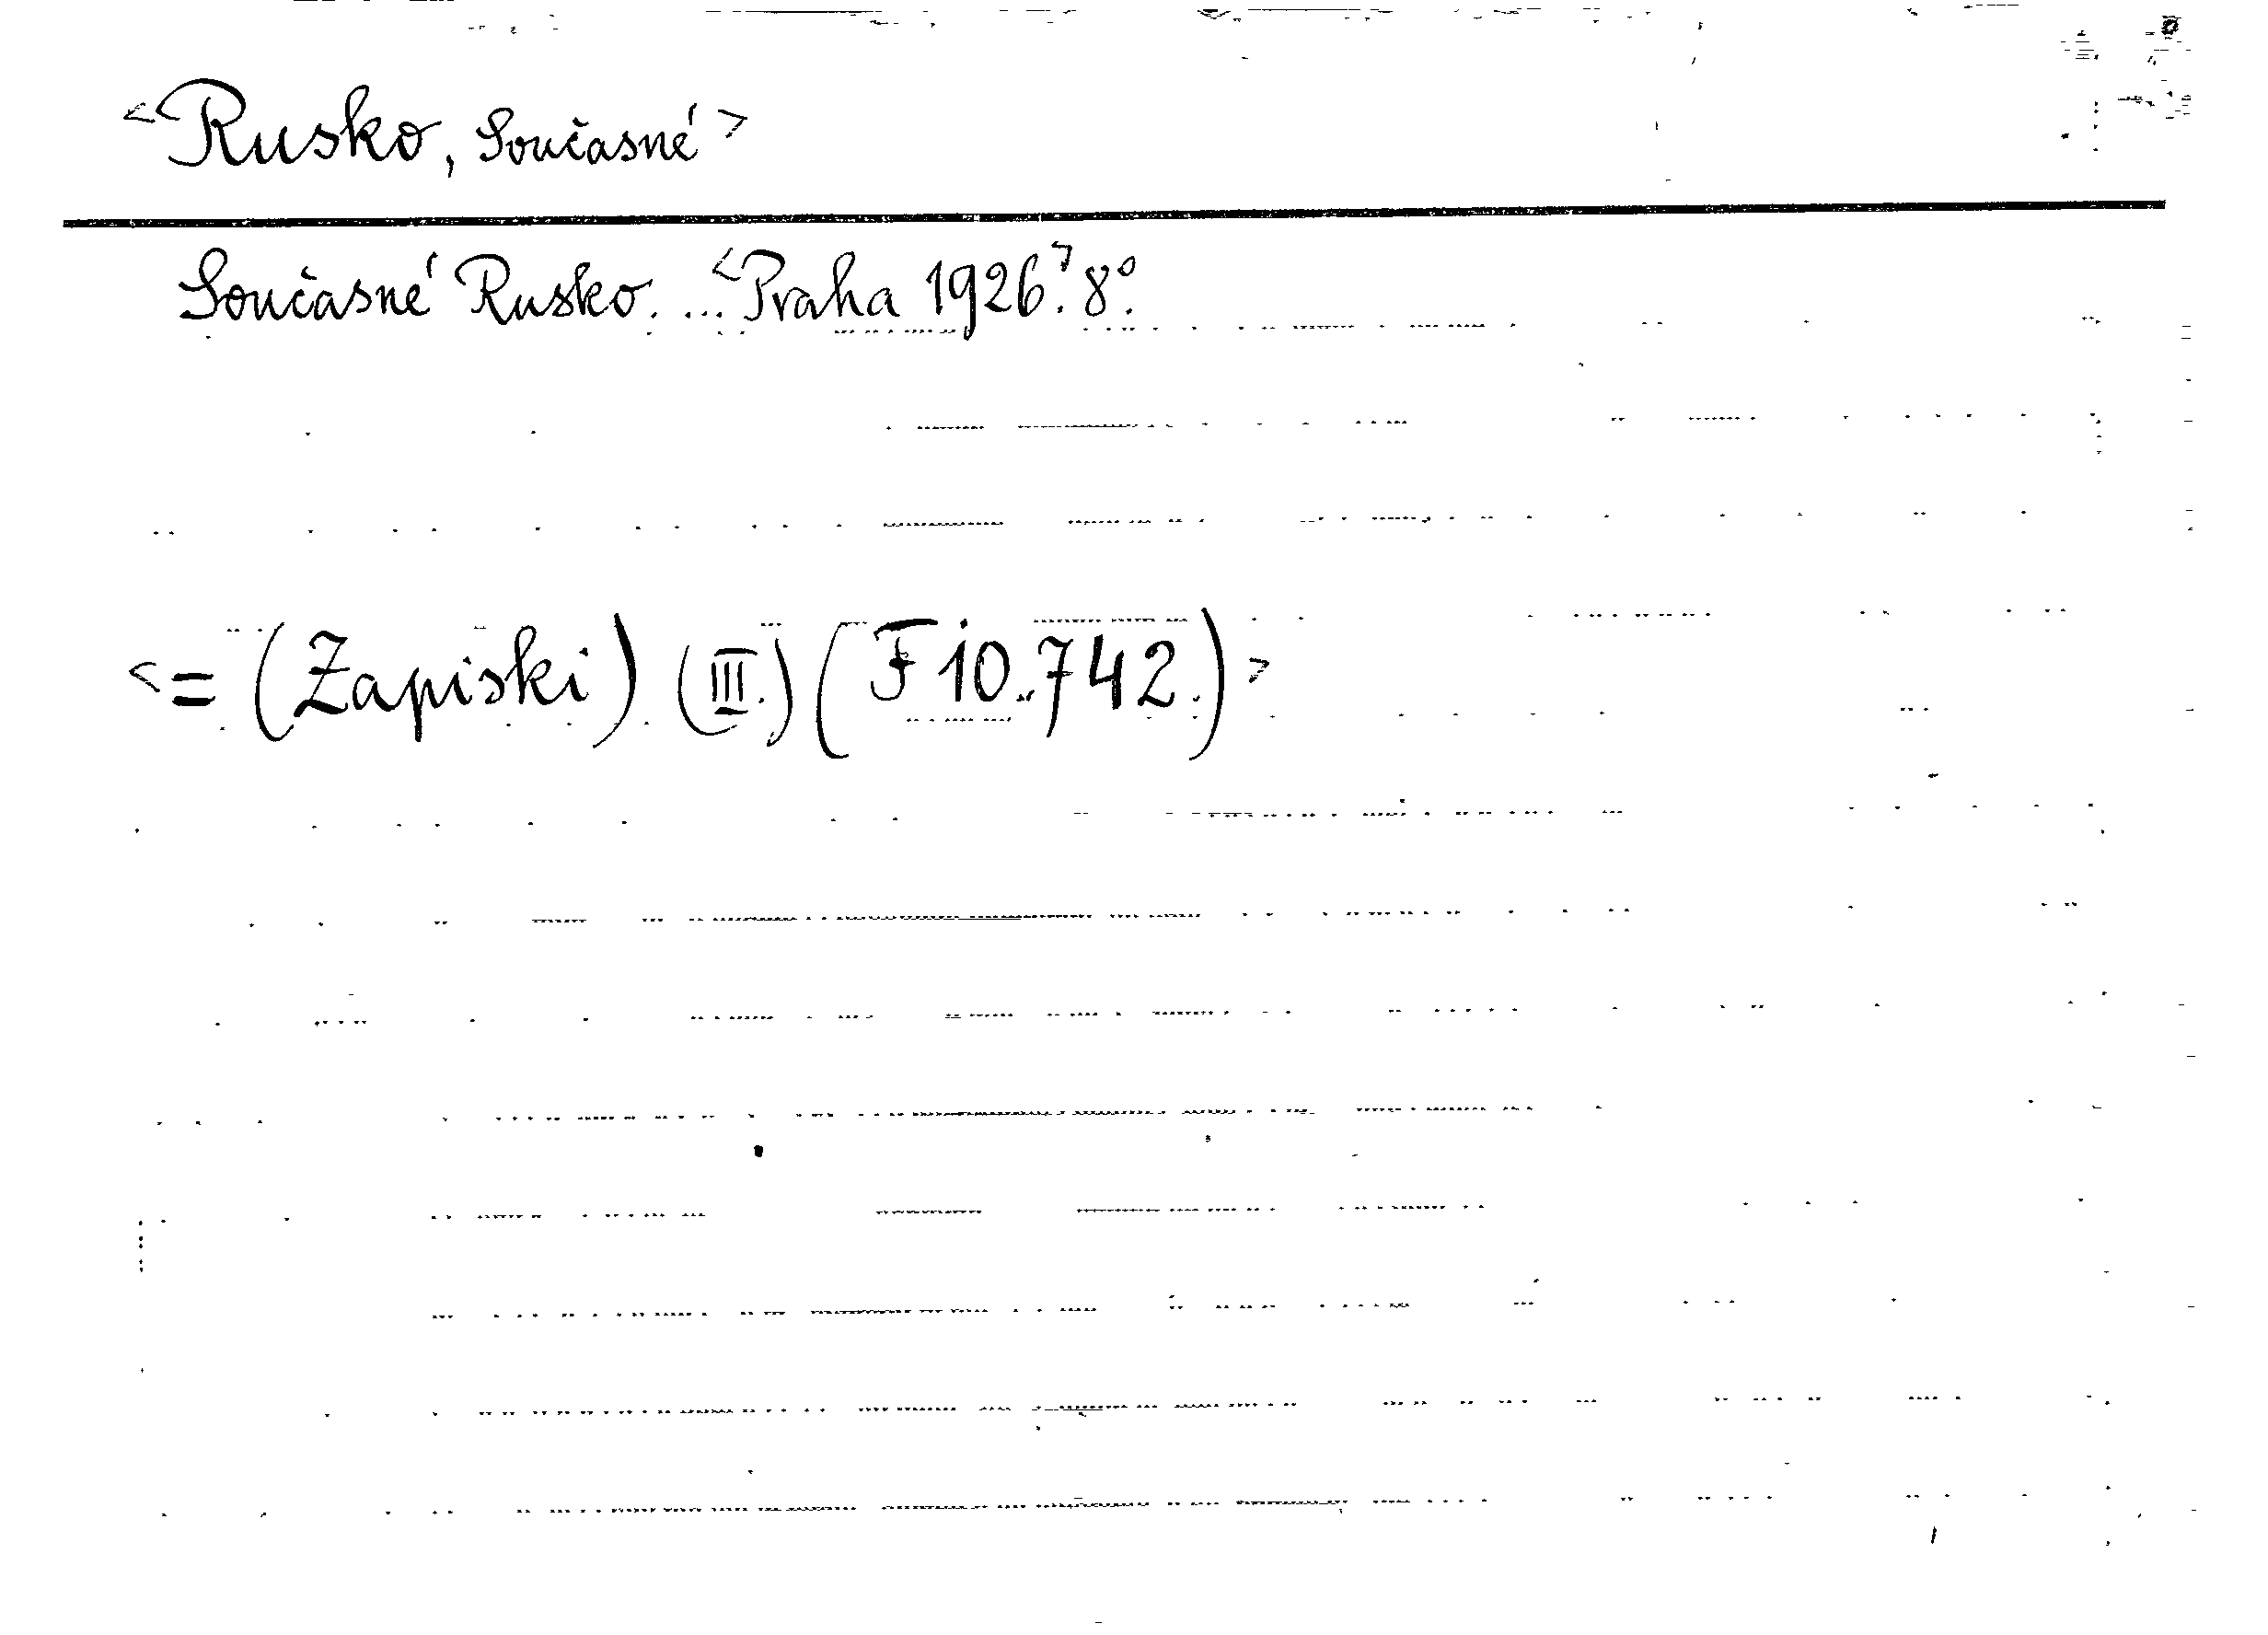 <Rusko, Současné>
Současné Rusko. ... <Praha 1926.> 8°.
<= (Zapiski) (III.) (F 10.742.)>